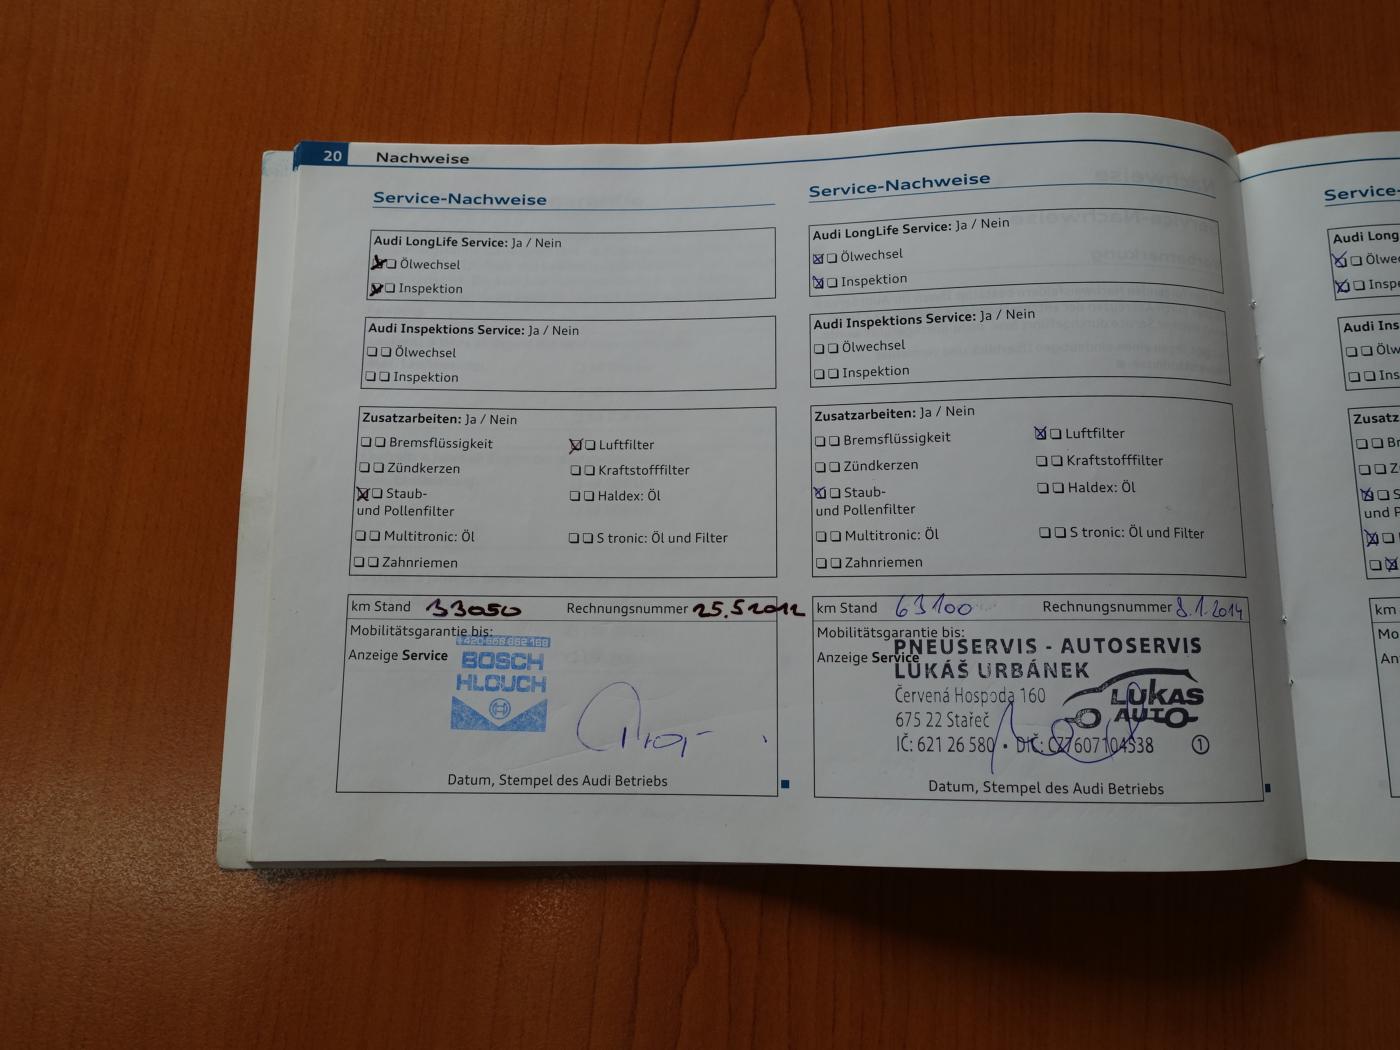 20 Nachweise
Service-Nachweise
Audi LongLife Service: Ja / Nein
Ölwechsel
Inspektion
Audi Inspektions Service: Ja / Nein
Ölwechsel
Inspektion
Zusatzarbeiten: Ja / Nein
Bremsflüssigkeit
Luftfilter
Zündkerzen
Kraftstofffilter
Staub-
und Pollenfilter
Haldex: Öl
Multitronic: Öl
S tronic: Öl und Filter
Zahnriemen
km Stand 33050 Rechnungsnummer 25.5.2012
Mobilitätsgarantie bis:
Anzeige Service
BOSCH
HLOUCH
Datum, Stempel des Audi Betriebs
Service-Nachweise
Audi LongLife Service: Ja / Nein
Ölwechsel
Inspektion
Audi Inspektions Service: Ja / Nein
Ölwechsel
Inspektion
Zusatzarbeiten: Ja / Nein
Bremsflüssigkeit
Luftfilter
Zündkerzen
Kraftstofffilter
Staub-
und Pollenfilter
Haldex: Öl
Multitronic: Öl
S tronic: Öl und Filter
Zahnriemen
km Stand 63100 Rechnungsnummer 8.1.2014
Mobilitätsgarantie bis:
Anzeige Service
PNEUSERVIS - AUTOSERVIS
LUKÁŠ URBÁNEK
Červená Hospoda 160
675 22 Stařeč
IČ: 621 26 580 • DIČ: CZ7607104538 1
LUKAS
AUTO
Datum, Stempel des Audi Betriebs
Service-
Audi Long
Ölwe
Inspe
Audi Ins
Ölw
Ins
Zusatz
Br
Z
S
und P
km
Mo
An